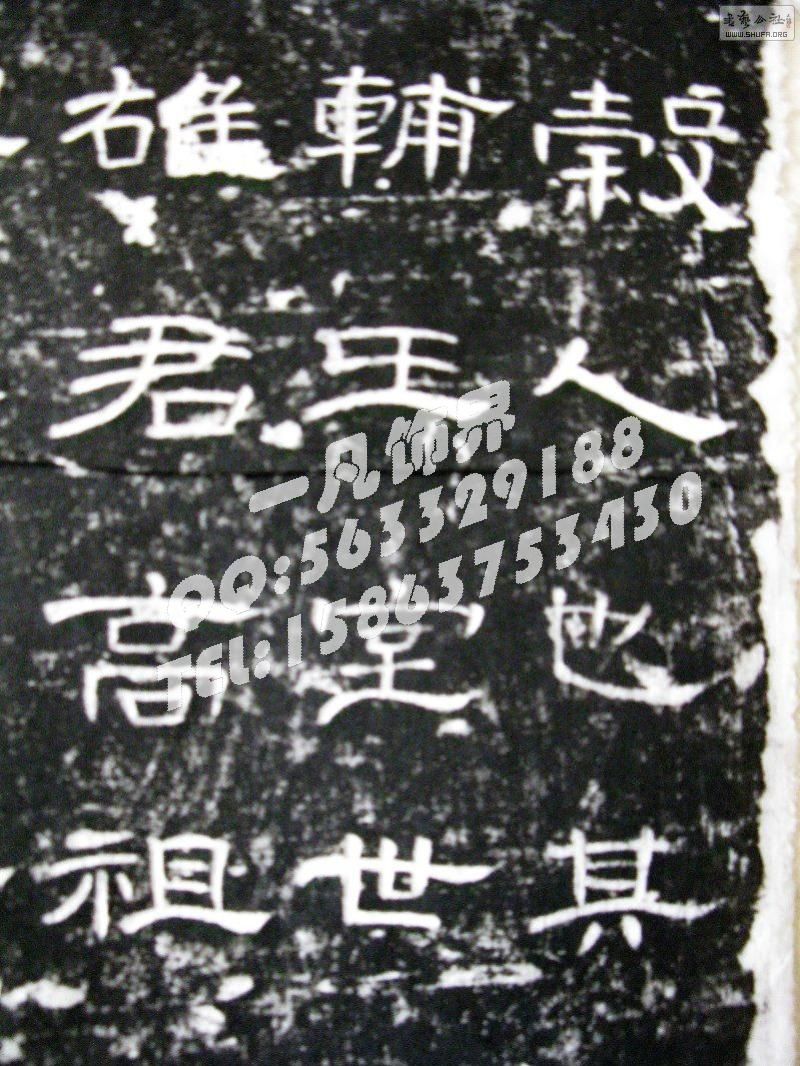 穀人也其
輔王室世
雄君高祖
一凡饰界
QQ:563329188
TEL:15863753430
書藝公社
WWW.SHUFA.ORG